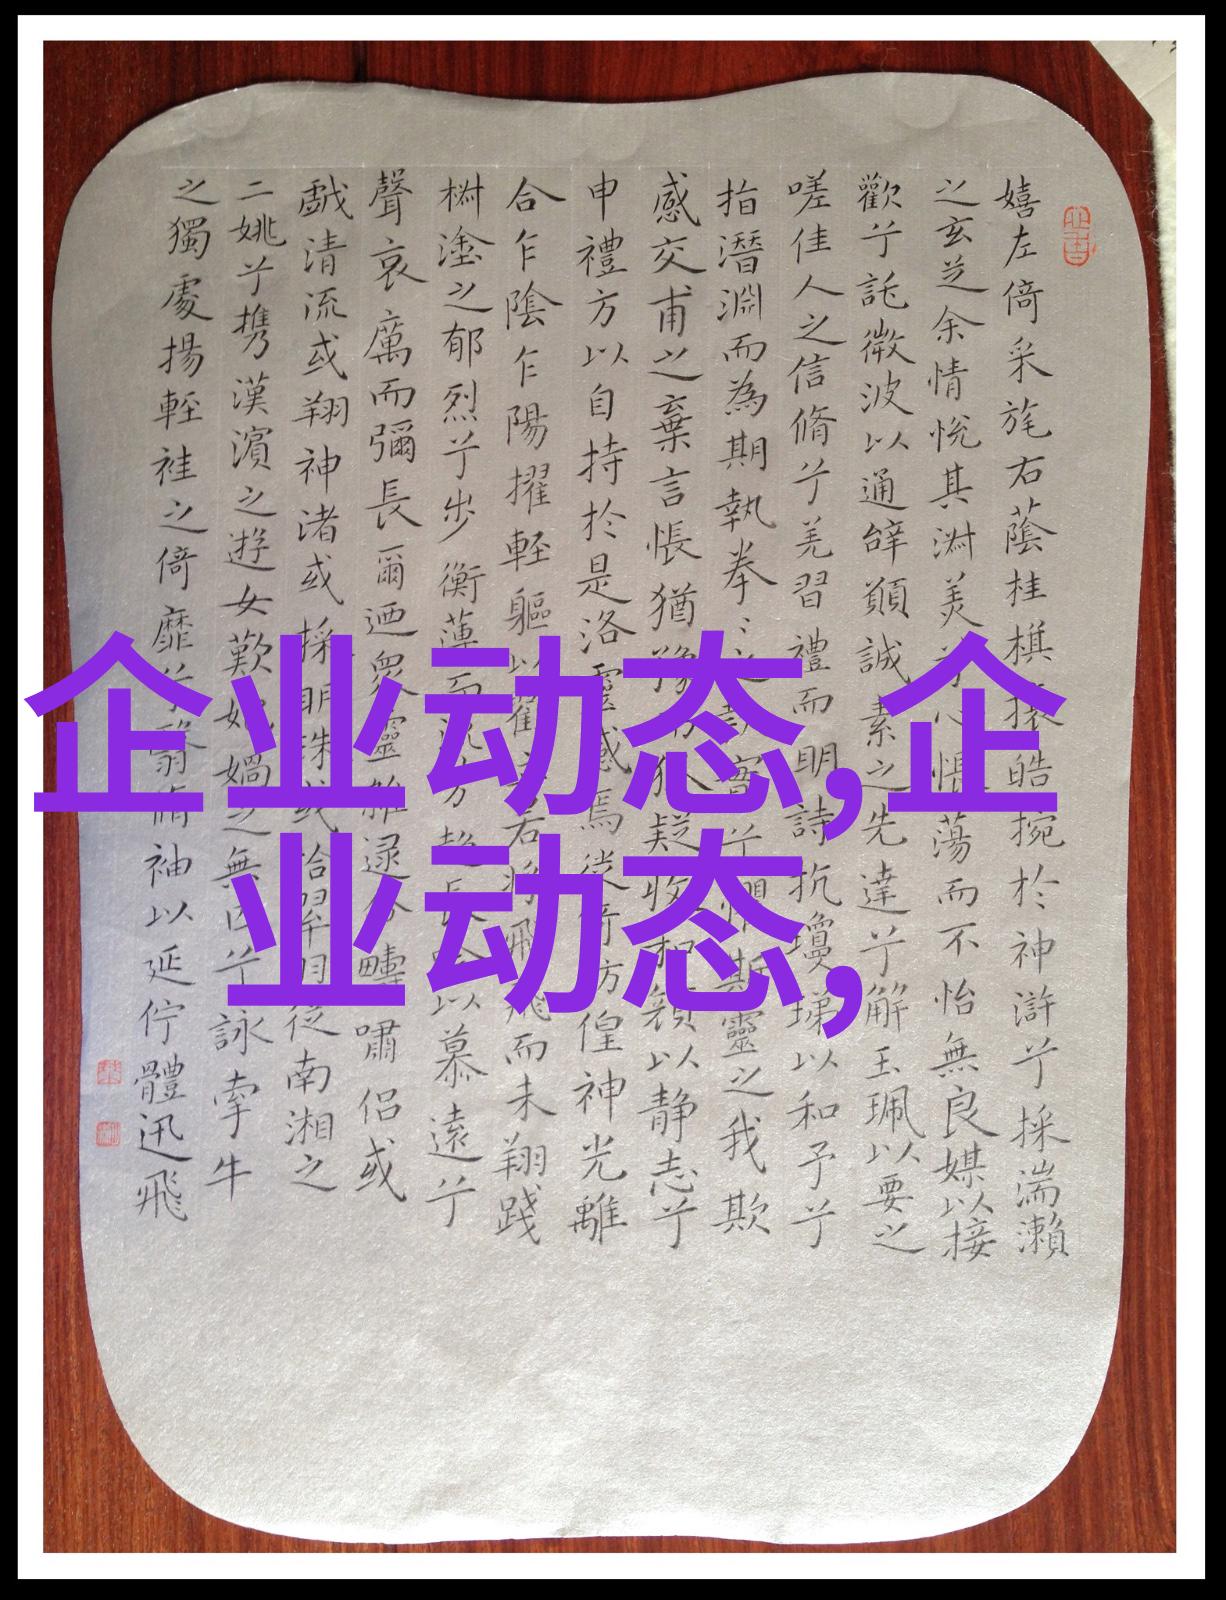 嬉左倚采旄右蔭桂棋攘皓捥於神滸兮採湍瀨
之玄芝余情悅其淑美兮心悵蕩而不怡無良媒以接
歡兮託微波以通辝願誠素之先達兮解玉珮以要之
嗟佳人之信脩兮羌習禮而明詩抗瓊珶以和予兮
指潛淵而為期執拳〻之款實兮懼斯靈之我欺
感交甫之棄言悵猶豫而狐疑收和顏以静志兮
申禮方以自持於是洛靈感焉徙倚方徨神光離
合乍陰乍陽擢輕軀以鶴立若將飛飛而未翔踐
椒塗之郁烈兮步衡薄而流芳超長吟以慕遠兮
聲哀厲而彌長爾迺衆靈雜逯命疇嘯侣或
戲清流或翔神渚或採明珠或拾翠羽從南湘之
二姚兮携漢濱之遊女歎匏媧之無匹兮詠牽牛
之獨處揚輕袿之倚靡兮翳脩袖以延佇體迅飛
企业动态,企
业动态,